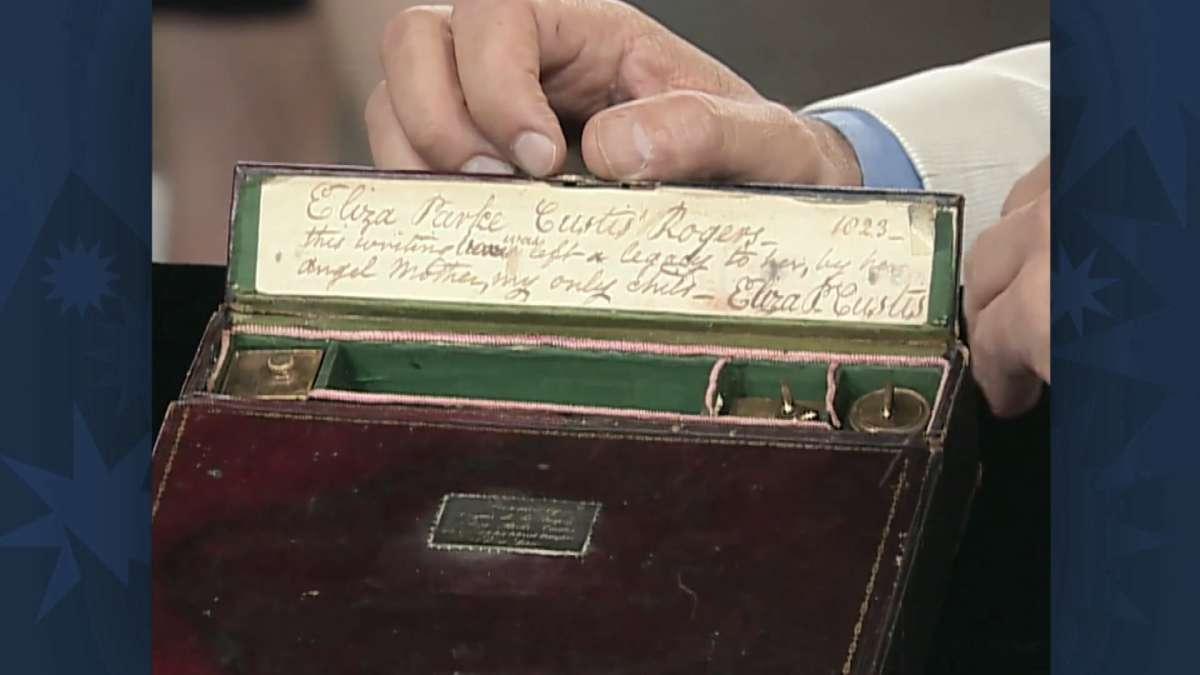 Eliza Parke Custis Rogers— 1823—
this writing was left a legacy to her, by her
angel Mother, my only child— Eliza P. Custis